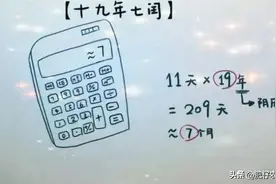 【十九年七闰】
≈7
11天×19年
=209天
≈7个月